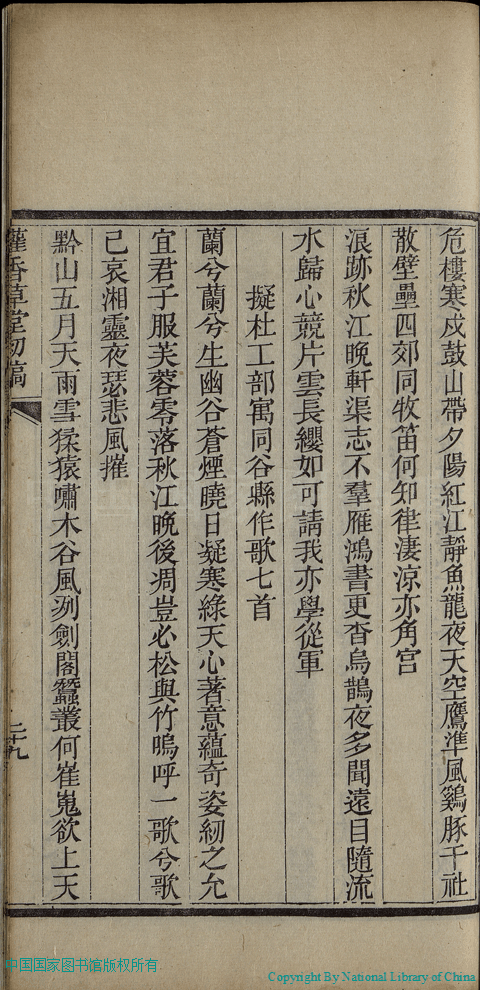 危樓寒戍鼓山帶夕陽紅江靜魚龍夜天空鷹準風鷄豚千社
散壁壘四郊同牧笛何知律淒涼亦角宫
浪跡秋江晚軒渠志不羣雁鴻書更杳烏鵲夜多聞遠目隨流
水歸心競片雲長纓如可請我亦學從軍
擬杜工部寓同谷縣作歌七首
蘭兮蘭兮生幽谷蒼煙曉日凝寒綠天心著意蘊奇姿紉之允
宜君子服芙蓉零落秋江晚後凋豈必松與竹嗚呼一歌兮歌
己哀湘靈夜瑟悲風摧
黔山五月天雨雪猱猿嘯木谷風冽劍閣蠶叢何崔嵬欲上天
灌香草堂初稿
二十九
中国国家图书馆版权所有
Copyright By National Library of China